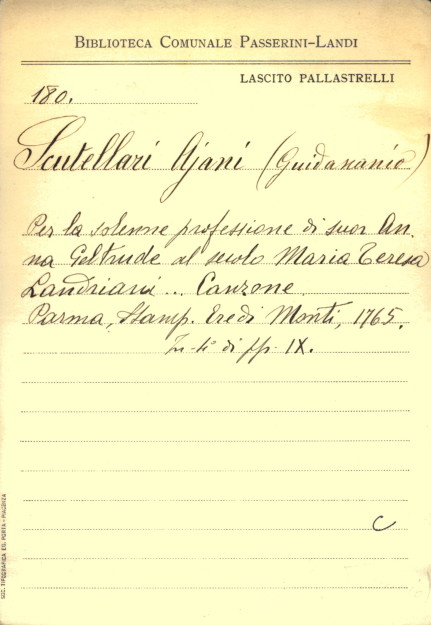 BIBLIOTECA COMUNALE PASSERINI-LANDI
LASCITO PALLASTRELLI
180.
Scutellari Ajani (Guidascanio)
Per la solenne professione di suor An-
na Geltrude al secolo Maria Teresa
Landriani... Canzone
Parma, Stamp. Eredi Monti, 1765.
In-4° di pp. IX.
C
SOC. TIPOGRAFICA ED. PORTA - PIACENZA